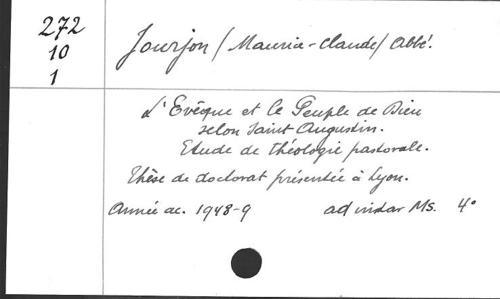 272
10
1
Jourjon / Maurice-Claude / Abbé.
L'Evêque et le Peuple de Dieu
selon Saint Augustin.
Etude de théologie pastorale.
Thèse de doctorat présentée à Lyon.
Année ac. 1948-9 ad instar Ms. 4°